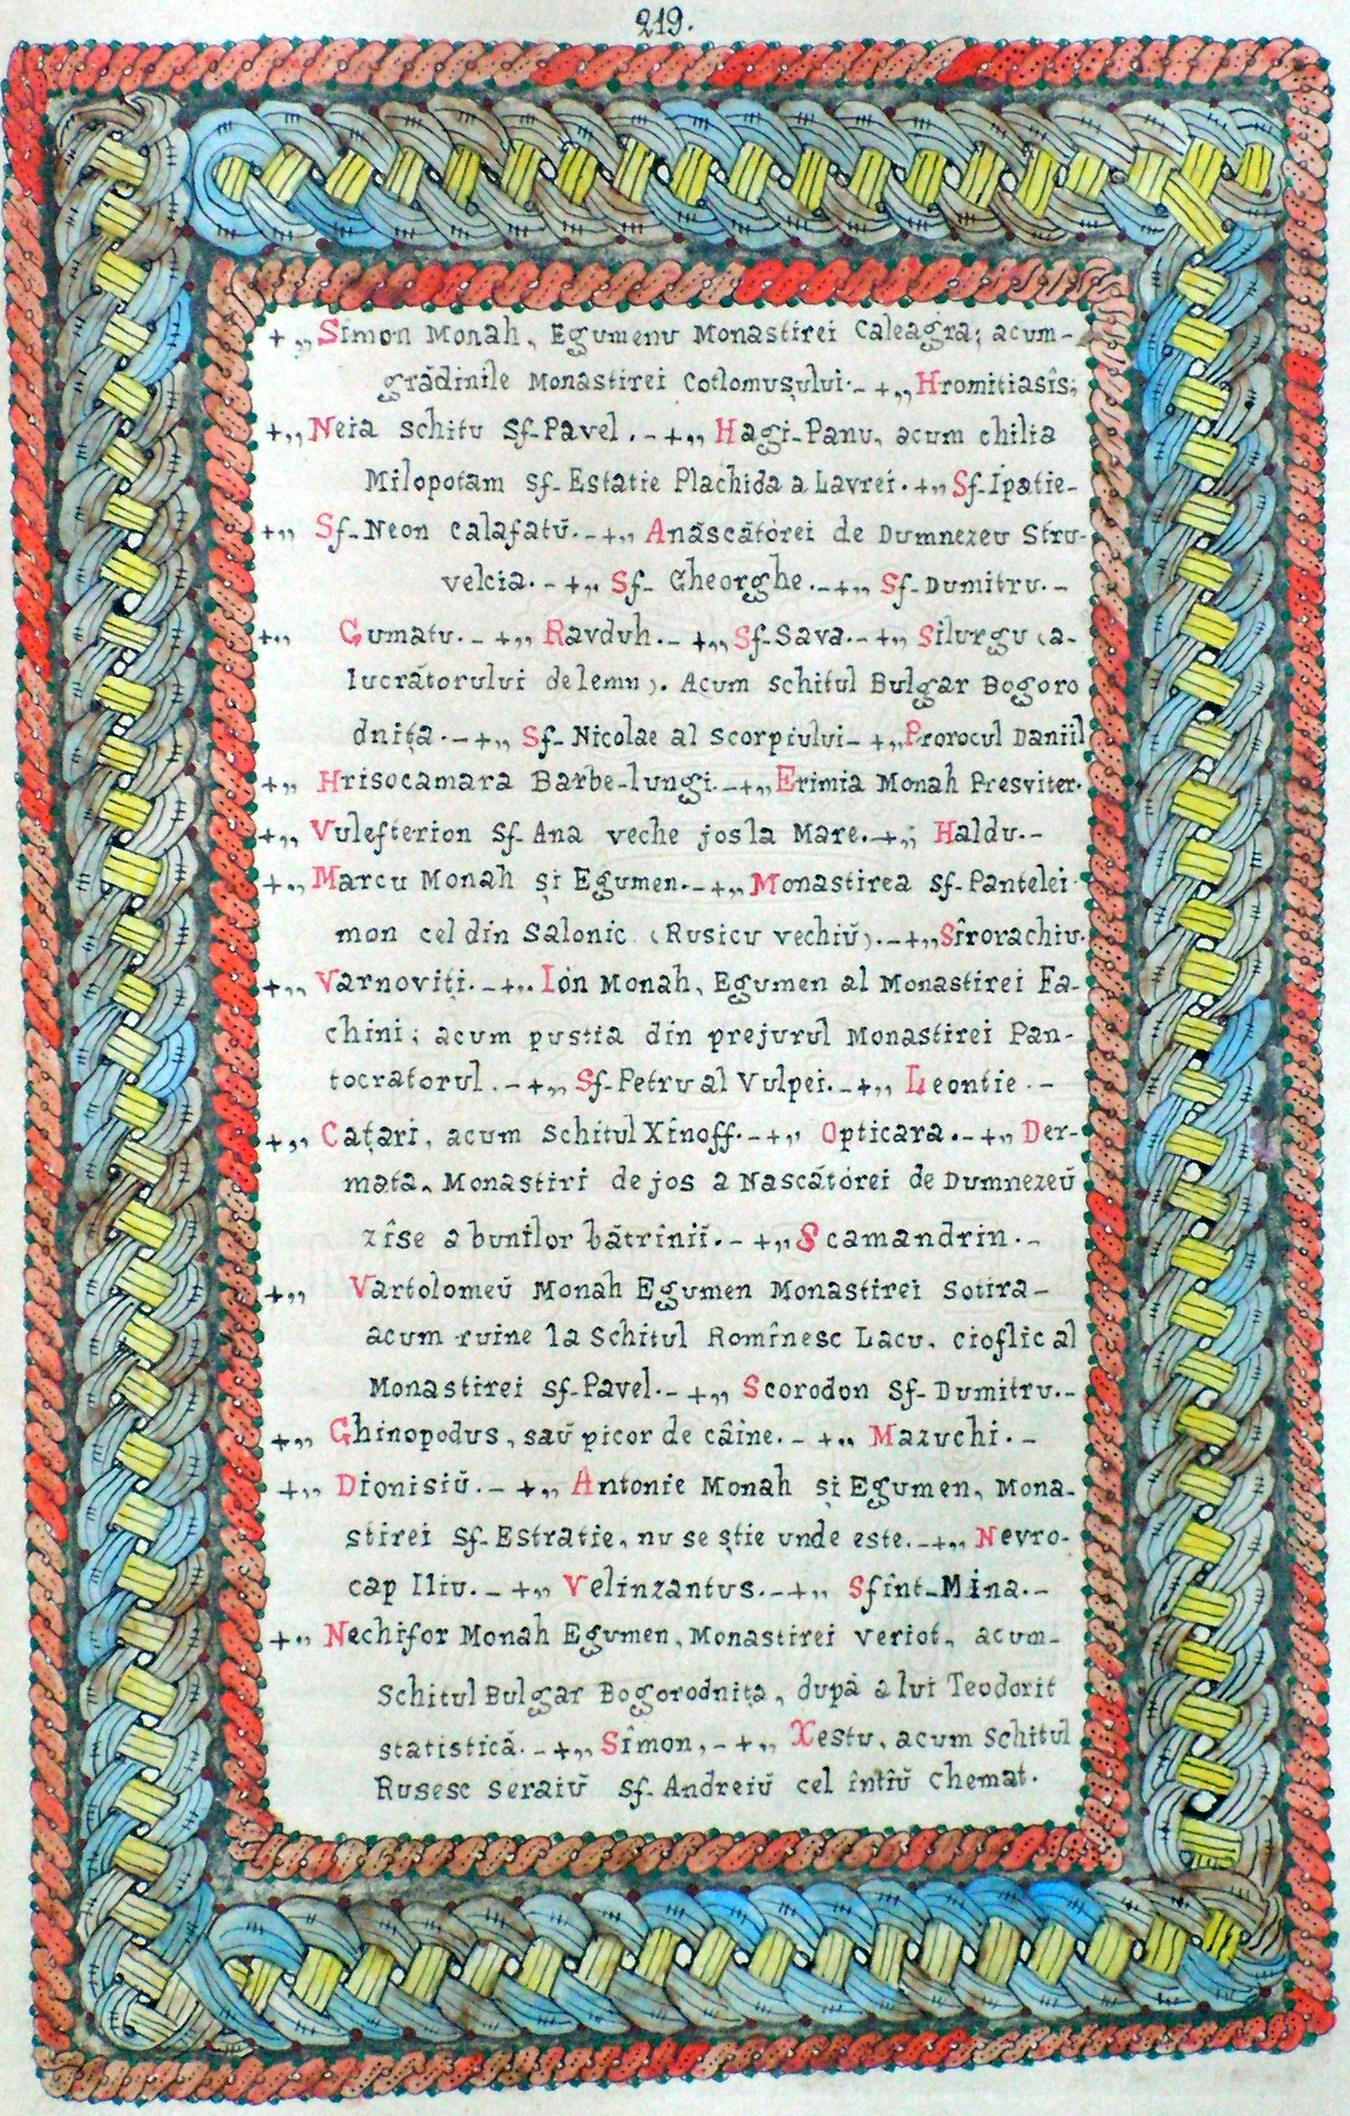 219.
+„Simon Monah, Egumenu Monastirei Caleagra; acum-
grădinile Monastirei Cotlomușului.- +„Hromitiasis;
+„Neia schitu Sf-Pavel.-+„Hagi-Panu, acum chilia
Milopotam Sf-Estatie Plachida a Lavrei.+„Sf-Ipatie-
+„ Sf-Neon Calafatŭ.-+„ Anăscătórei de Dumnezeu Stru-
velcia.-+„ Sf- Gheorghe.-+„ Sf-Dumitru.-
+„ Gumatu.-+„ Ravduh.-+„Sf-Sava.-+„ Silurgu (a-
lucrătorului de lemn). Acum Schitul Bulgar Bogoro
dnița.-+„ Sf-Nicolae al Scorpiului-+„Prorocul Daniil
+„ Hrisocamara Barbe-lungi.-+„Erimia Monah Presviter.
+„ Vulefterion Sf-Ana veche jos la Mare.-+„ Haldu.-
+„Marcu Monah și Egumen.-+„Monastirea Sf-Pantelei
mon cel din Salonic (Rusicu vechiŭ).-+„Sîrorachiu.
+„ Varnoviți.-+„Ión Monah, Egumen al Monastirei Fa-
chini; acum pustia din prejurul Monastirei Pan-
tocratorul.-+„ Sf-Petru al Vulpei.-+„ Leontie.-
+„ Cațari, acum Schitul Xînoff.-+„ Opticara.-+„ Der-
mata, Monastiri de jos a Nascătórei de Dumnezeŭ
zîse a bunilor bătrinii.-+„Scamandrin.-
+„ Vartolomeŭ Monah Egumen Monastirei Sotira-
acum ruine la Schitul Romînesc Lacu, cioflic al
Monastirei Sf-Pavel.-+„ Scorodon Sf-Dumitru.-
+„ Ghinopodus, saŭ picor de câine.-+„ Mazuchi.-
+„ Dionisiŭ.-+„ Antonie Monah și Egumen, Mona-
stirei Sf-Estratie, nu se știe unde este.-+„ Nevro-
cap Iliu.-+„ Velinzantus.-+„ Sfînt-Mina.-
+„ Nechifor Monah Egumen, Monastirei veriot, acum-
Schitul Bulgar Bogorodnița, după a lui Teodorit
statistică.-+„ Sîmon,-+„ Xestu, acum Schitul
Rusesc Seraiŭ Sf-Andreiŭ cel întîŭ chemat.